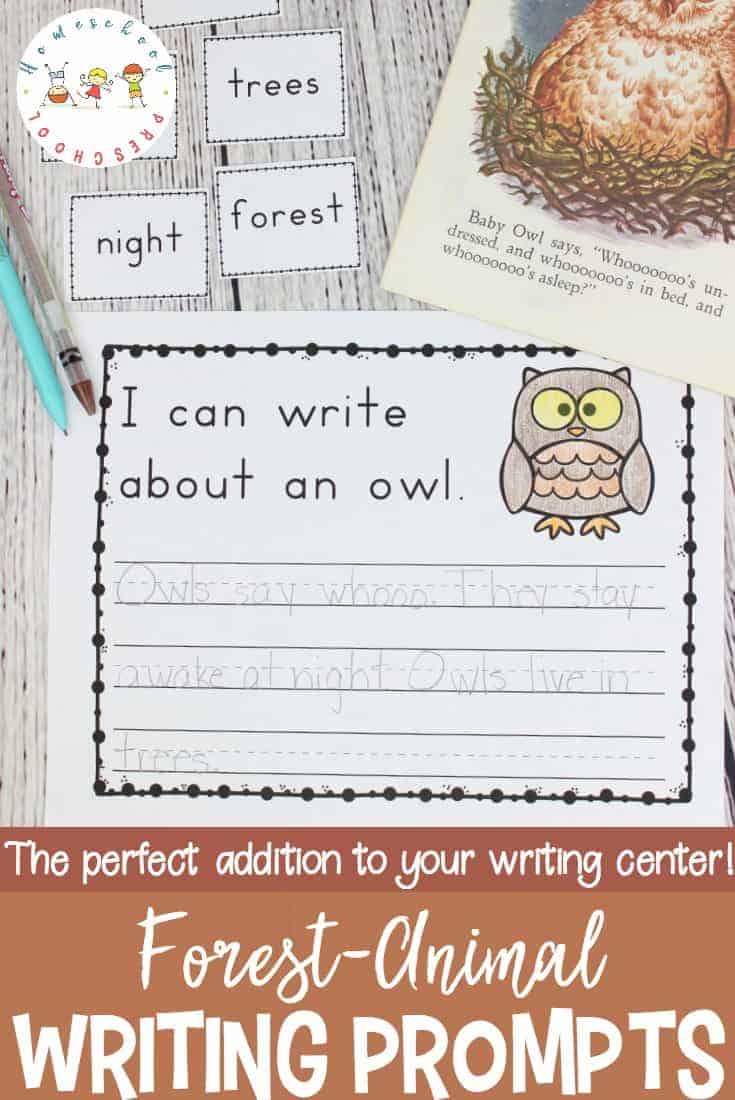 Homeschool
PRESCHOOL
trees
night
forest
Baby Owl says, "Whooooooo's un-
dressed, and whooooooo's in bed, and
whooooooo's asleep?"
I can write
about an owl.
Owls say whooo. They stay
awake at night. Owls live in
trees.
The perfect addition to your writing center!
Forest-Animal
WRITING PROMPTS